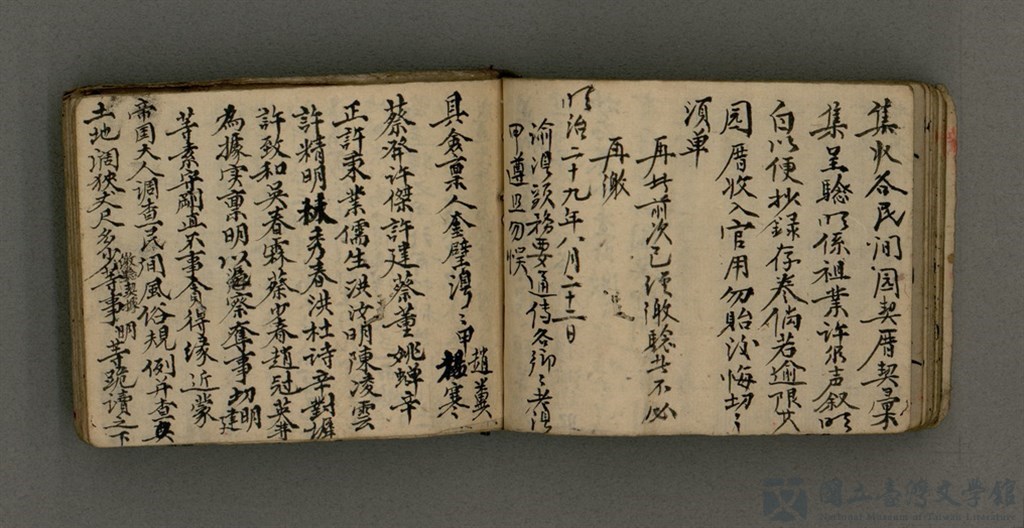 集收各民间园契厝契彙
集呈驗以係祖業許伊声叙明
白以便抄録存卷倘若逾限其
园厝收入官用勿貽後悔切〻
須单
再者前次已經繳驗者不必
再繳
明治二十九年八月二十二日
諭澳頭務要通傳各鄉〻耆
甲遵照勿悞
具僉禀人奎壁澳〻甲
趙
楊寒
蔡發許傑許建蔡董姚蟬辛
正許秉業儒生洪汝明陳凌雲
許精明林秀春洪杜詩辛對墀
許致和吳春霖蔡少春趙冠英
為據实禀明以察奪事切明
等素守剛直不事貪得缘近蒙
帝国大人調查民间風俗規例并查
土地濶狭丈尺多少等事明等跪讀之下
國立臺灣文學館
National Museum of Taiwan Literature